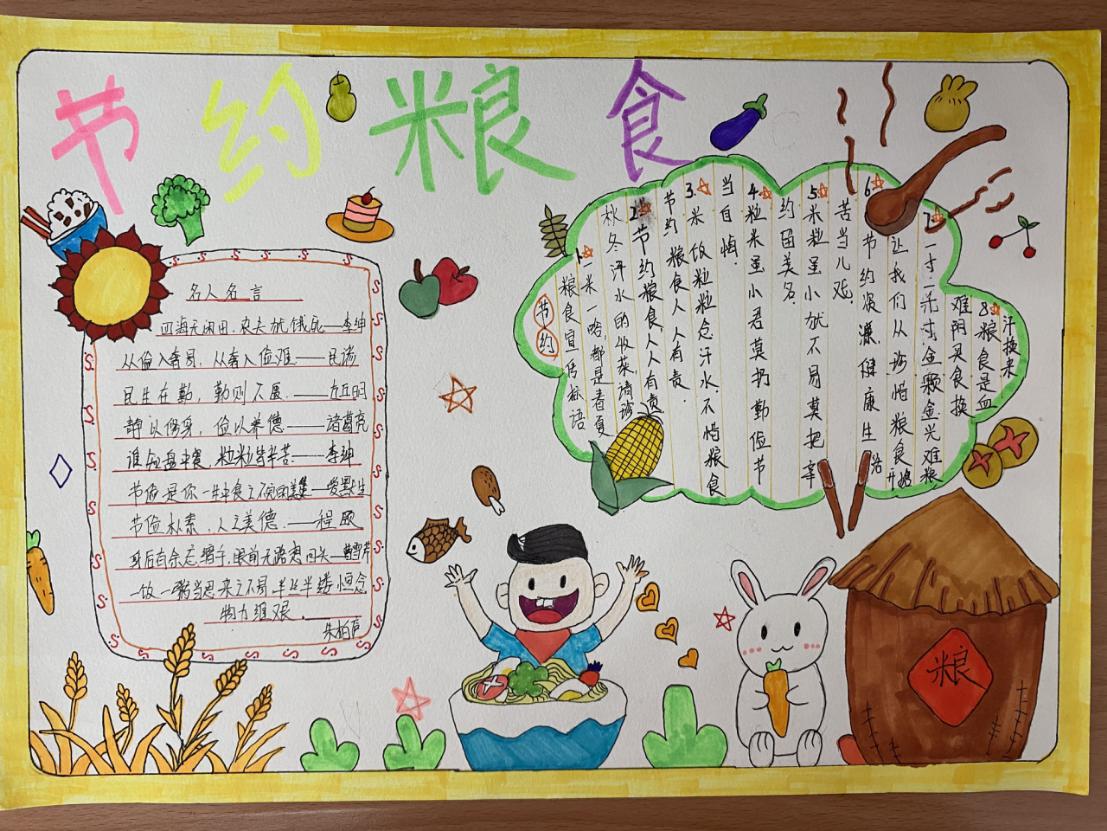 节约粮食
名人名言
四海无闲田,农夫犹饿死——李绅
从俭入奢易,从奢入俭难——民谚
民生在勤,勤则不匮.——左丘明
静以修身,俭以养德——诸葛亮
谁知盘中餐 粒粒皆辛苦——李绅
节俭是你一生食之不完的——爱默生
节俭朴素,人之美德.——程颐
身后有余忘缩手,眼前无路想回头——曹雪芹
一饭一粥当思来之不易半丝半缕恒念
物力维艰.
朱柏庐
节约
粮食宣传标语
1.米一啥,都是春夏
秋冬汗水的收
2.节约粮食人人有责
节约粮食人人有责.
3.米饭粒粒念汗水不惜粮食
当自悼.
4.粒米虽小君莫扔勤俭节
约留美名.
5.米粒虽小就不易莫把辛
苦当儿戏.
6.节约资源健康生活
让我们从珍惜粮食开始
7.一寸一寸金颗金光难粮
难阴买食换
8.粮食是血
汗换来
粮